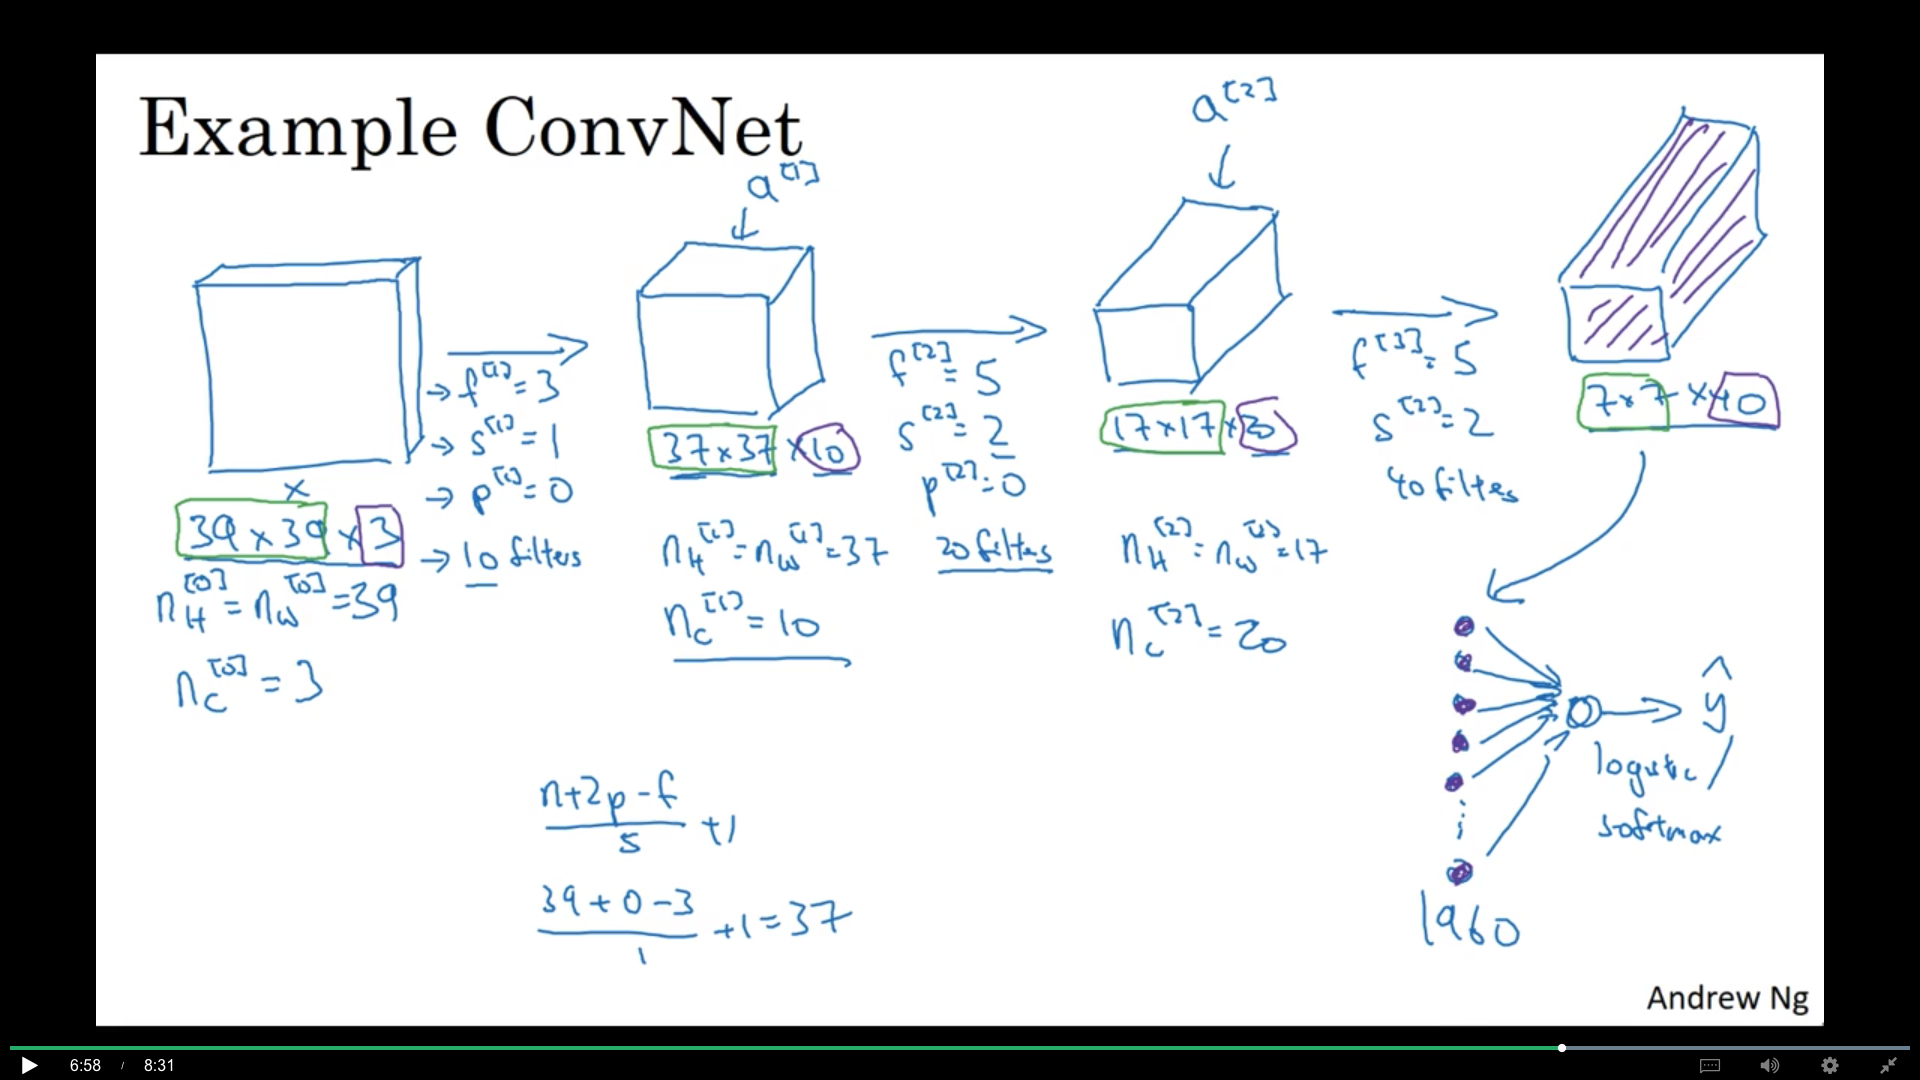 Example ConvNet
a^[1]
a^[2]
x
39 x 39 x 3
n_H^[0] = n_W^[0] = 39
n_C^[0] = 3
→ f^[1] = 3
→ s^[1] = 1
→ p^[1] = 0
→ 10 filters
37 x 37 x 10
n_H^[1] = n_W^[1] = 37
n_C^[1] = 10
f^[2] = 5
s^[2] = 2
p^[2] = 0
20 filters
17 x 17 x 20
n_H^[2] = n_W^[2] = 17
n_C^[2] = 20
f^[3] = 5
s^[2] = 2
40 filters
7 x 7 x 40
1960
ŷ
logistic /
softmax
n+2p-f
s
+1
39+0-3
1
+1 = 37
Andrew Ng
6:58 / 8:31